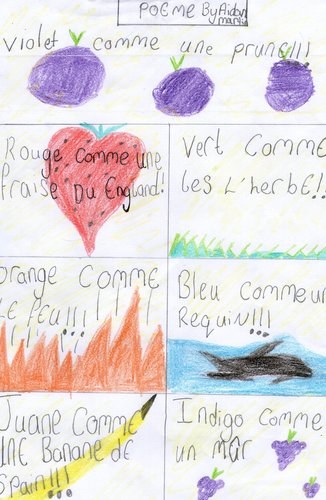 POEME By Aidan
Martin
violet comme une prune!!!
Rouge comme une
fraise Du England!
Vert Comme
Les L'herbe!!
Orange Comme
Le feu!!!
Bleu Comme un
Requin!!!
Juane Comme
UNE Banane de
Spain!!!
Indigo Comme
un mûr